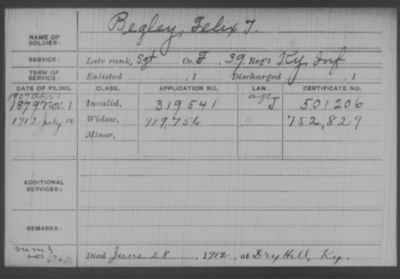 NAME OF SOLDIER: Begley, Felix T.
SERVICE: Late rank, Sgt Co. F, 39 Reg't Ky. Inf
TERM OF SERVICE: Enlisted , 1 Discharged , 1
DATE OF FILING. CLASS. APPLICATION NO. LAW. CERTIFICATE NO.
1879 Nov. 1 Invalid, 319541 J 501206
1912 July 10 Widow, 919,756 752,829
Minor,
ADDITIONAL SERVICES:
REMARKS:
Died June 28, 1912, at Dry Hill, Ky.